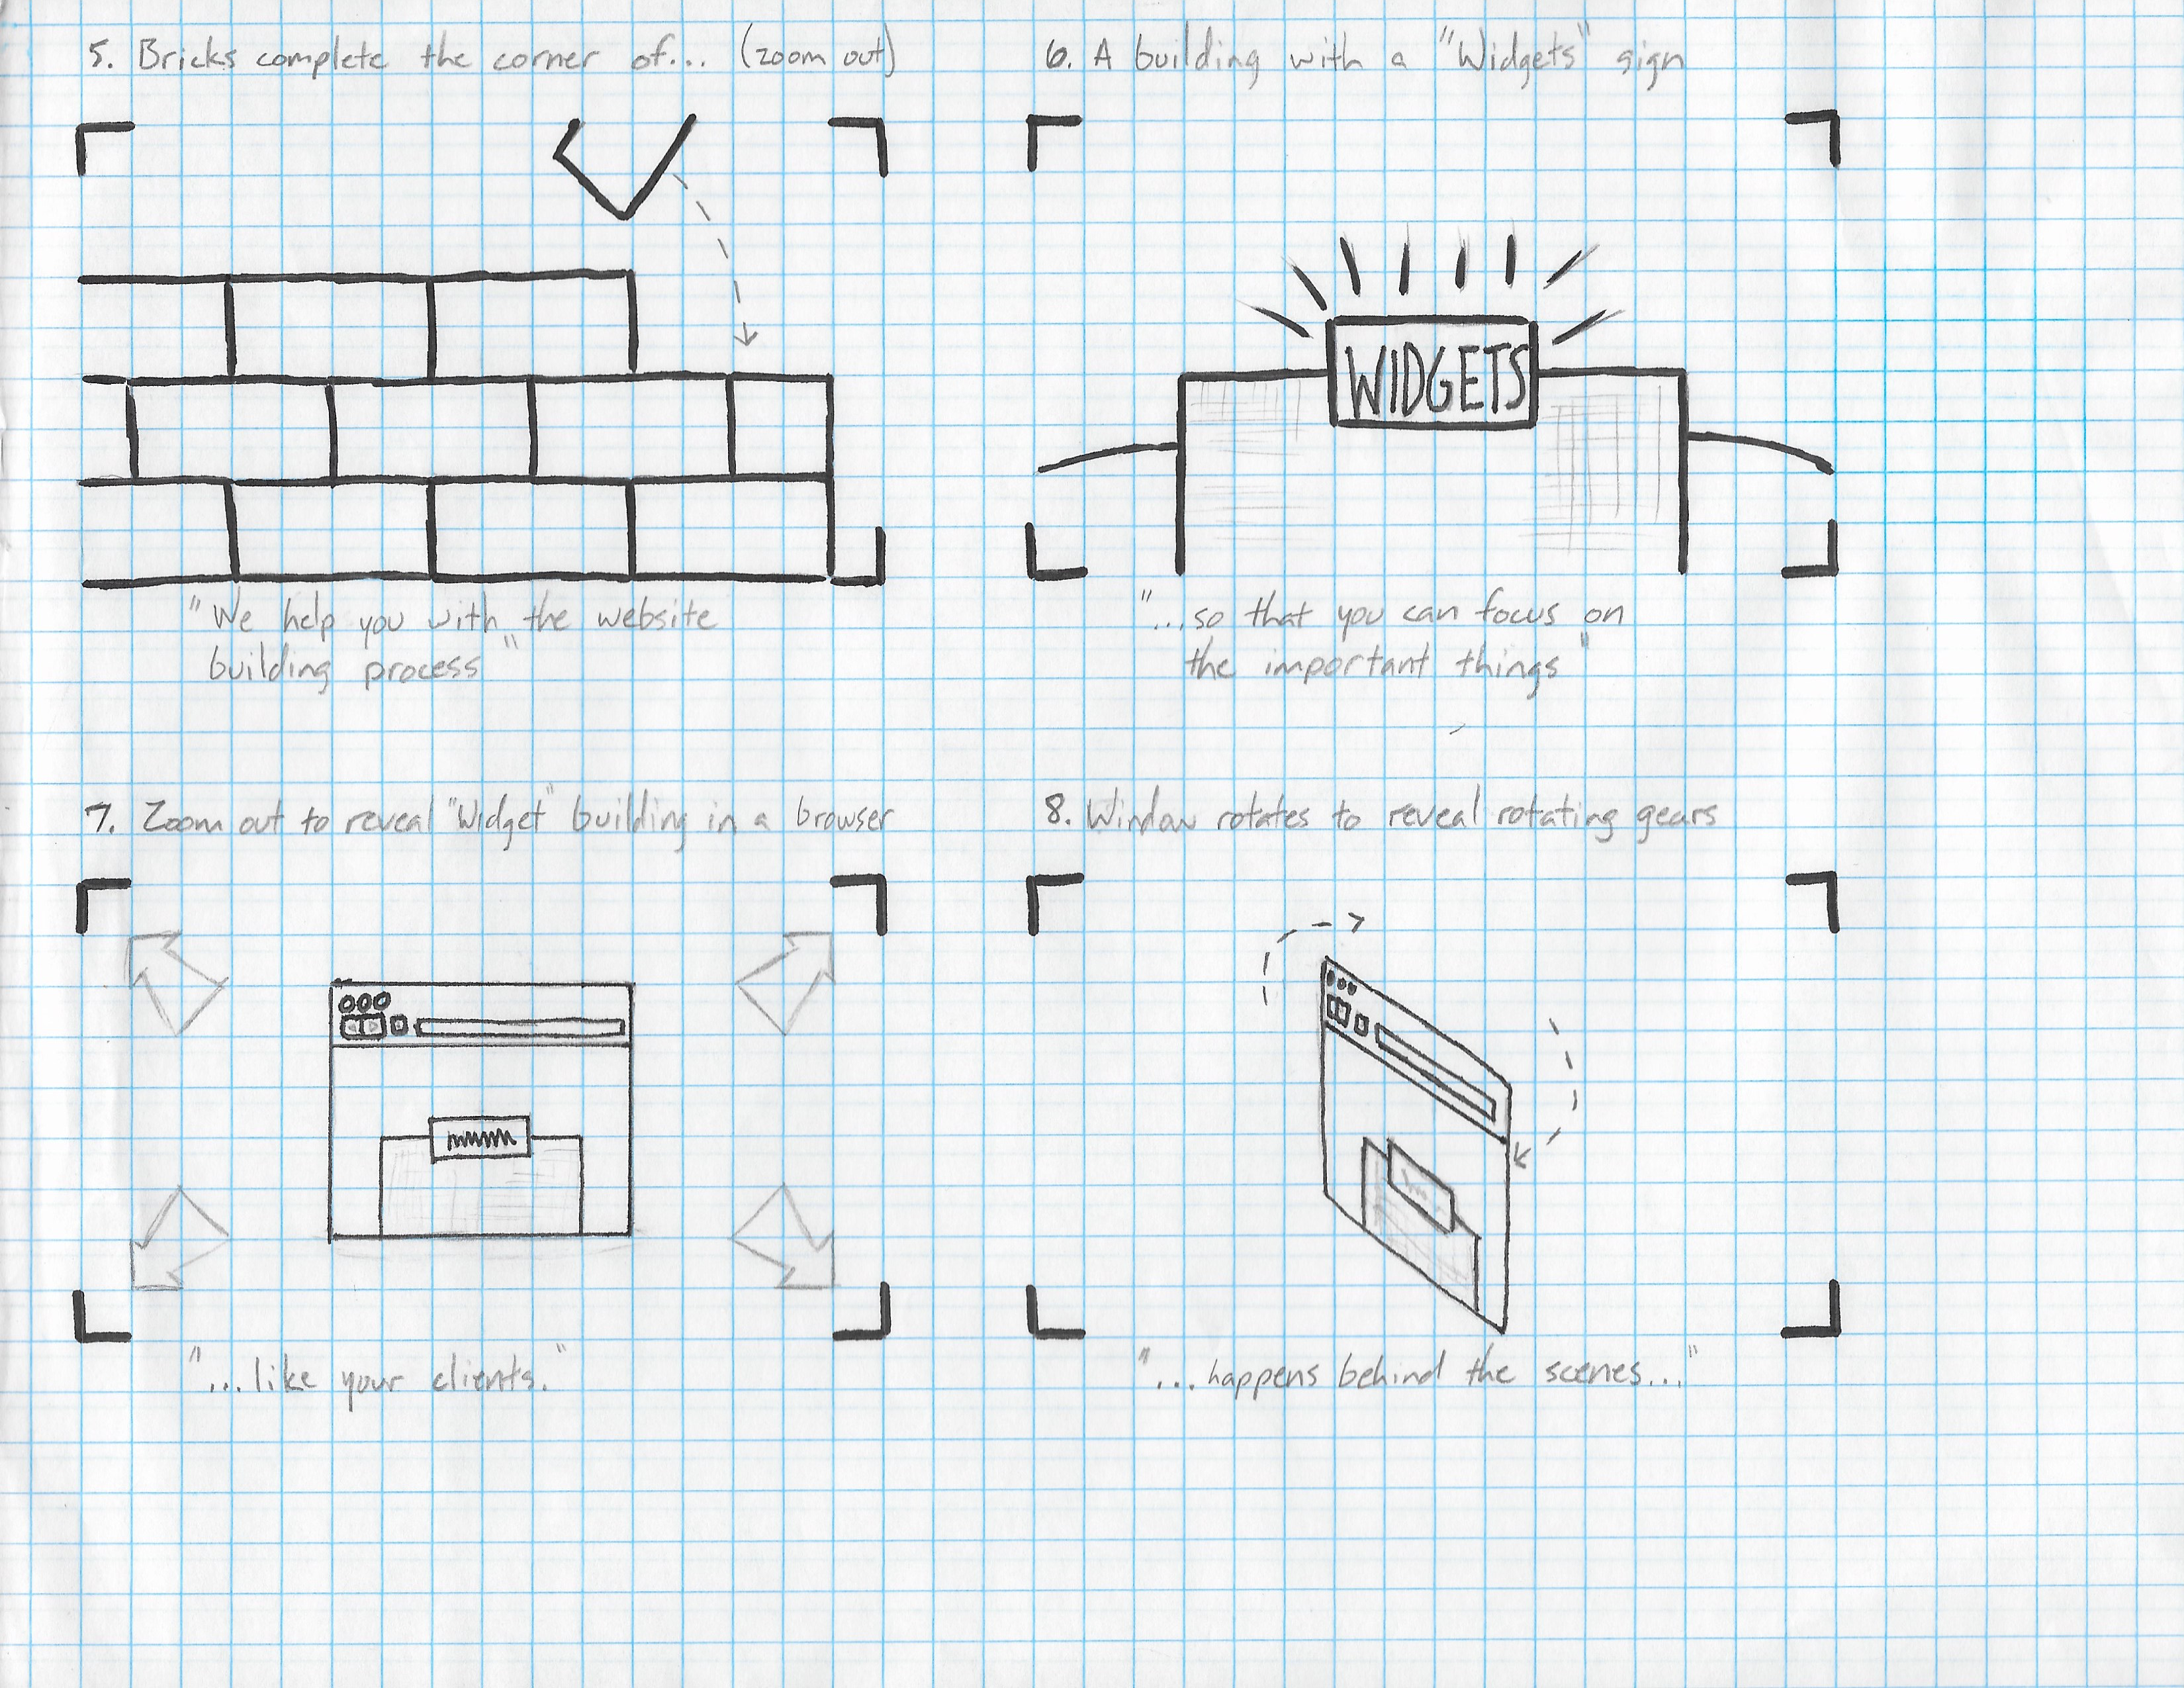 5. Bricks complete the corner of... (zoom out)
"We help you with the website
building process"
6. A building with a "Widgets" sign
WIDGETS
"...so that you can focus on
the important things"
7. Zoom out to reveal "Widget" building in a browser
"...like your clients."
8. Window rotates to reveal rotating gears
"...happens behind the scenes..."